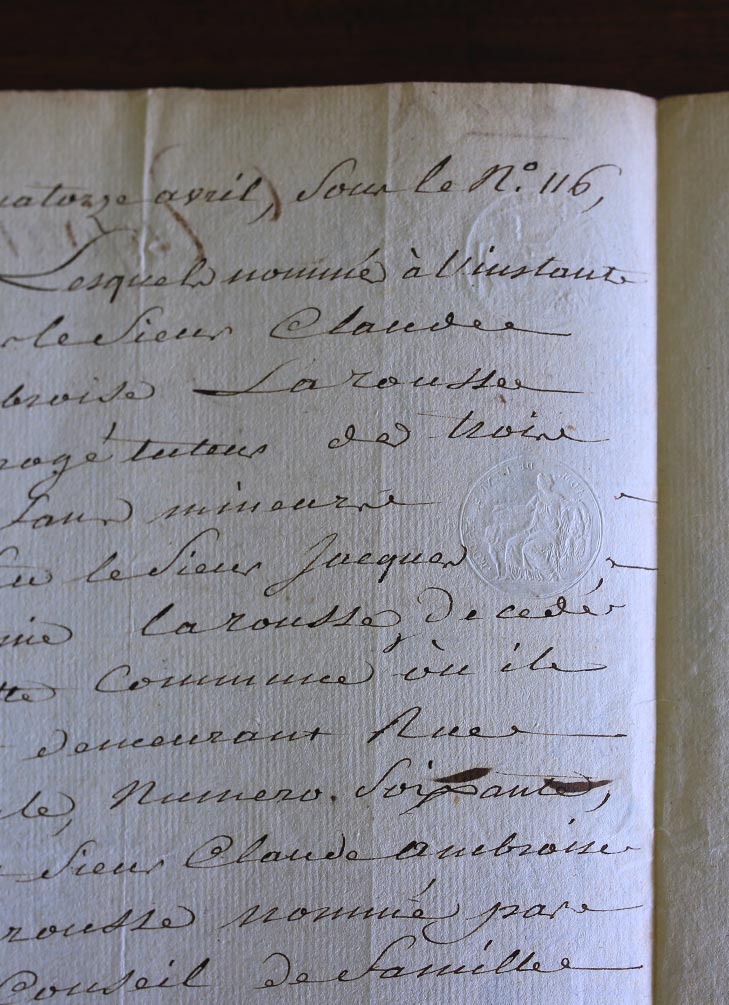 uatorze avril, Sous le N.º 116,
Lesquels nommé à l'instant
le Sieur Claude
broise Larousse
rogé tuteur de trois
fans mineurs
feu le Sieur Jacques
mie Larousse, decedé
tte Commune où il
demeurant Rue
le, Numero. Soixante,
Sieur Claude ambroise
rousse nommé par
Conseil de famille